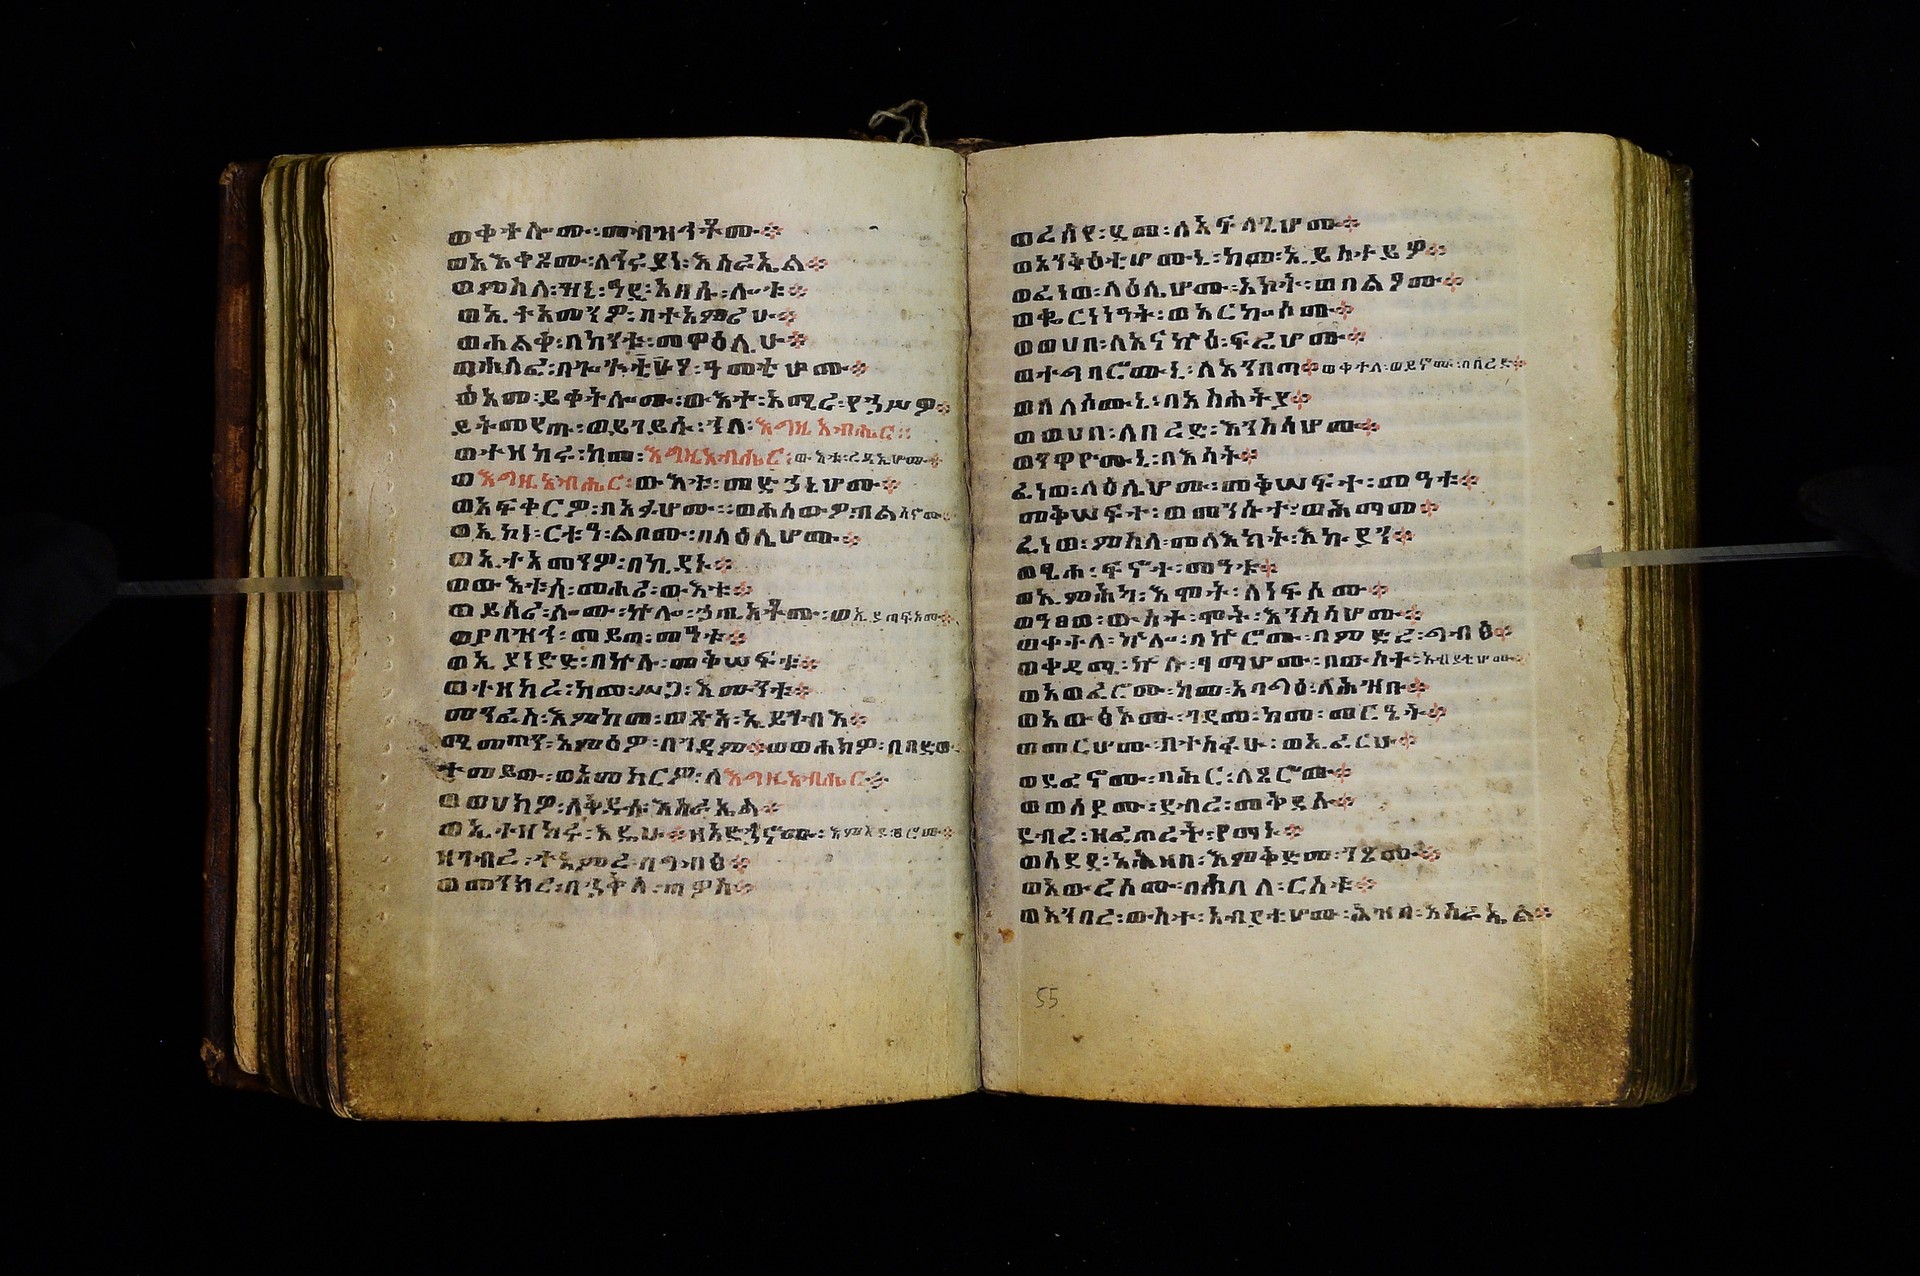 ወቀተሎሙ፡መብዝኅቶሙ።
ወአእቀጾሙ፡ለኅሩያነ፡እስራኤል።
ወምስለ፡ዝኒ፡ዓዲ፡አበሱ፡ሎቱ።
ወኢተአመንዎ፡በተአምሪሁ።
ወሐልቀ፡በከንቱ፡መዋዕሊሁ።
ወሐለፈ፡ዓመቲሆሙ።
ወአመ፡ይቀትሎሙ፡ውእተ፡አሚረ፡የኃሥዎ።
ይትመየጡ፡ወይገይሱ፡ኀበ፡እግዚአብሔር።
ወተዘከሩ፡ከመ፡እግዚአብሔር፡ውእቱ፡ረዳኢሆሙ።
ወእግዚአብሔር፡ውእቱ፡መድኃኒሆሙ።
ወአፍቀርዎ፡በአፉሆሙ፡፡ወሐሰውዎ፡በልሳኖሙ።
ወኢኮነ፡ርቱዓ፡ልቦሙ፡በላዕሌሆሙ።
ወኢተአመንዎ፡በኪዳኑ።
ወውእቱሰ፡መሐሪ፡ውእቱ።
ወይሰሪ፡ሎሙ፡ኵሎ፡ኃጢአቶሙ፡ወኢያጠፍኦሙ።
ወያበዝኅ፡መይጠ፡መዓቱ።
ወኢያነድድ፡በኵሉ፡መቅሠፍቱ።
ወተዘከረ፡ከመ፡ሥጋ፡እሙንቱ።
መንፈስ፡እምከመ፡ወጽአ፡ኢይገብእ።
ሚመጠነ፡አምዕዎ፡በገዳም።ወወሐክዎ፡በበድው።
ተመይጡ፡ወአመከርዎ፡ለእግዚአብሔር።
ወወሀክዎ፡ለቅዱሰ፡እስራኤል።
ወኢተዘከሩ፡እዴሁ።ዘአድኃኖሙ፡እምእደ፡ጸሮሙ።
ዘገብረ፡ተአምረ፡በግብፅ።
ወመንክረ፡በኃቅለ፡ጣዎስ።
ወረሰየ፡ደመ፡ለአፍላጊሆሙ።
ወአንቅዕቲሆሙኒ፡ከመ፡ኢይስተይዎ።
ወፈነወ፡ላዕሌሆሙ፡አክት፡ወበልዖሙ።
ወቈርነነዓት፡ወአርኰሶሙ።
ወወሀበ፡ለአናኵዕ፡ፍሬሆሙ።
ወተግባሮሙኒ፡ለአንበጣ።ወቀተለ፡ወይኖሙ፡በበረድ።
ወበለሶሙኒ፡በአስሐትያ።
ወወሀበ፡ለበረድ፡እንስሳሆሙ።
ወንዋዮሙኒ፡በእሳት።
ፈነወ፡ላዕሌሆሙ፡መቅሠፍተ፡መዓቱ።
መቅሠፍተ፡ወመንሱተ፡ወሕማመ።
ፈነወ፡ምስለ፡መላእክት፡እኩያን።
ወፄሐ፡ፍኖተ፡መዓቱ።
ወኢምሕካ፡እሞት፡ለነፍሶሙ።
ወዓፀወ፡ውስተ፡ሞት፡እንስሳሆሙ።
ወቀተለ፡ኵሎ፡በኵሮሙ፡በምድረ፡ግብፅ።
ወቀዳሜ፡ኵሉ፡ፃማሆሙ፡በውስተ፡አብያቲሆሙ።
ወአወፈሮሙ፡ከመ፡አባግዕ፡ለሕዝቡ።
ወአውፅኦሙ፡ገዳመ፡ከመ፡መርዔት።
ወመርሆሙ፡በተስፋሁ፡ወኢፈርሁ።
ወደፈኖሙ፡ባሕር፡ለጸሮሙ።
ወወሰዶሙ፡ደብረ፡መቅደሱ።
ደብረ፡ዘፈጠረት፡የማኑ።
ወሰደደ፡አሕዛበ፡እምቅድመ፡ገጾሙ።
ወአውረሶሙ፡በሐብለ፡ርስቱ።
ወአንበረ፡ውስተ፡አብያቲሆሙ፡ሕዝበ፡እስራኤል።
55